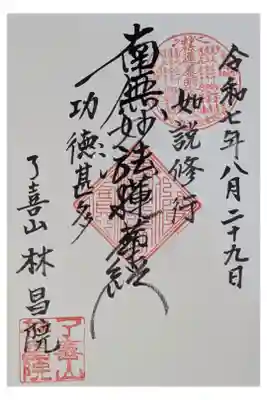 令和七年八月二十九日
如説修行
南無妙法蓮華経
功徳甚多
了喜山 林昌院
了喜山